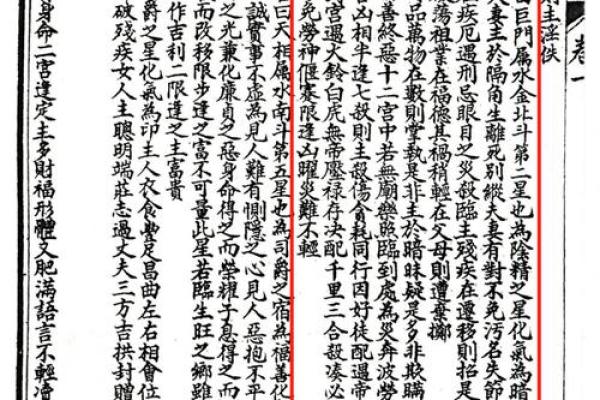 卷一
主淫佚
曰巨門屬水金北斗第二星也為陰精之星化氣為暗
夫妻主於隔角生離死別縱夫妻有對不免污名失節
疾厄遇刑忌眼目之災殺臨主殘疾在遷移則招是
蕩祖業在福德其禍稍輕在父母則遭棄擲
品萬物在數則掌執是非主於暗昧疑是多非欺瞞
善終惡十二宮中若無廟樂照臨到處為災奔波勞
凶相半逢七殺則主殺傷貪耗同行因好徒配遇帝
宮遇火鈴白虎無帝壓祿存決配千里三合殺湊必
免勞神偃蹇限逢凶曜災難不輕
曰天相屬水南斗第五星也為司爵之宿為福善化
誠實事不虛為見人難有惻隱之心見人惡抱不平
之光兼化廉貞之惡身命得之而榮耀子息得之而
而改移限步逢之富不可量此星若臨生旺之鄉雖
作吉利二限逢之主富貴
爵之星化氣為印主人衣食豐足昌曲左右相會位
破殘疾女人主聰明端莊志過丈夫三方吉拱封贈
身命二宮逢定主多財福形體又肥滿語言不輕